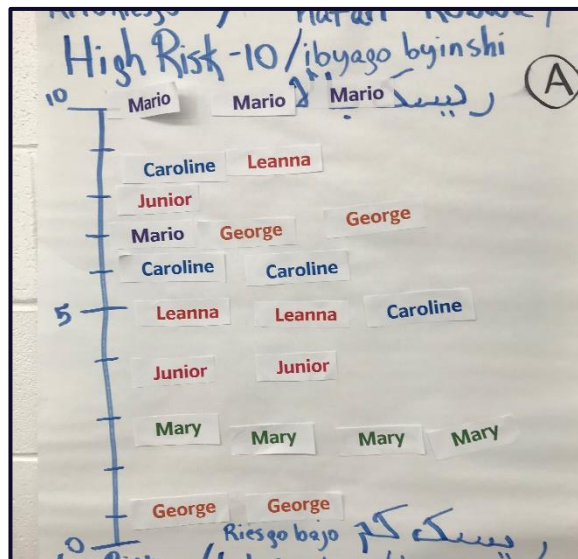 High Risk -10/ibyago byinshi
ریسک بالا
A
10
Mario Mario Mario
Caroline Leanna
Junior
Mario George George
Caroline Caroline
5
Leanna Leanna Caroline
Junior Junior
Mary Mary Mary Mary
George George
0
Riesgo bajo ریسک کم